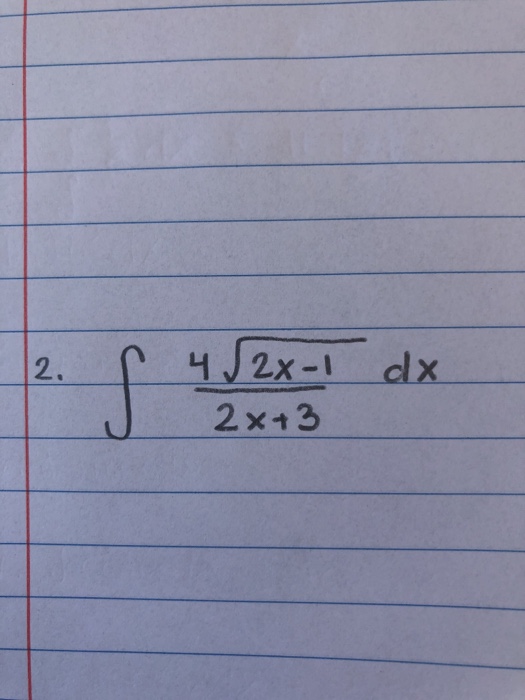 2. ∫ 4√(2x-1) / (2x+3) dx